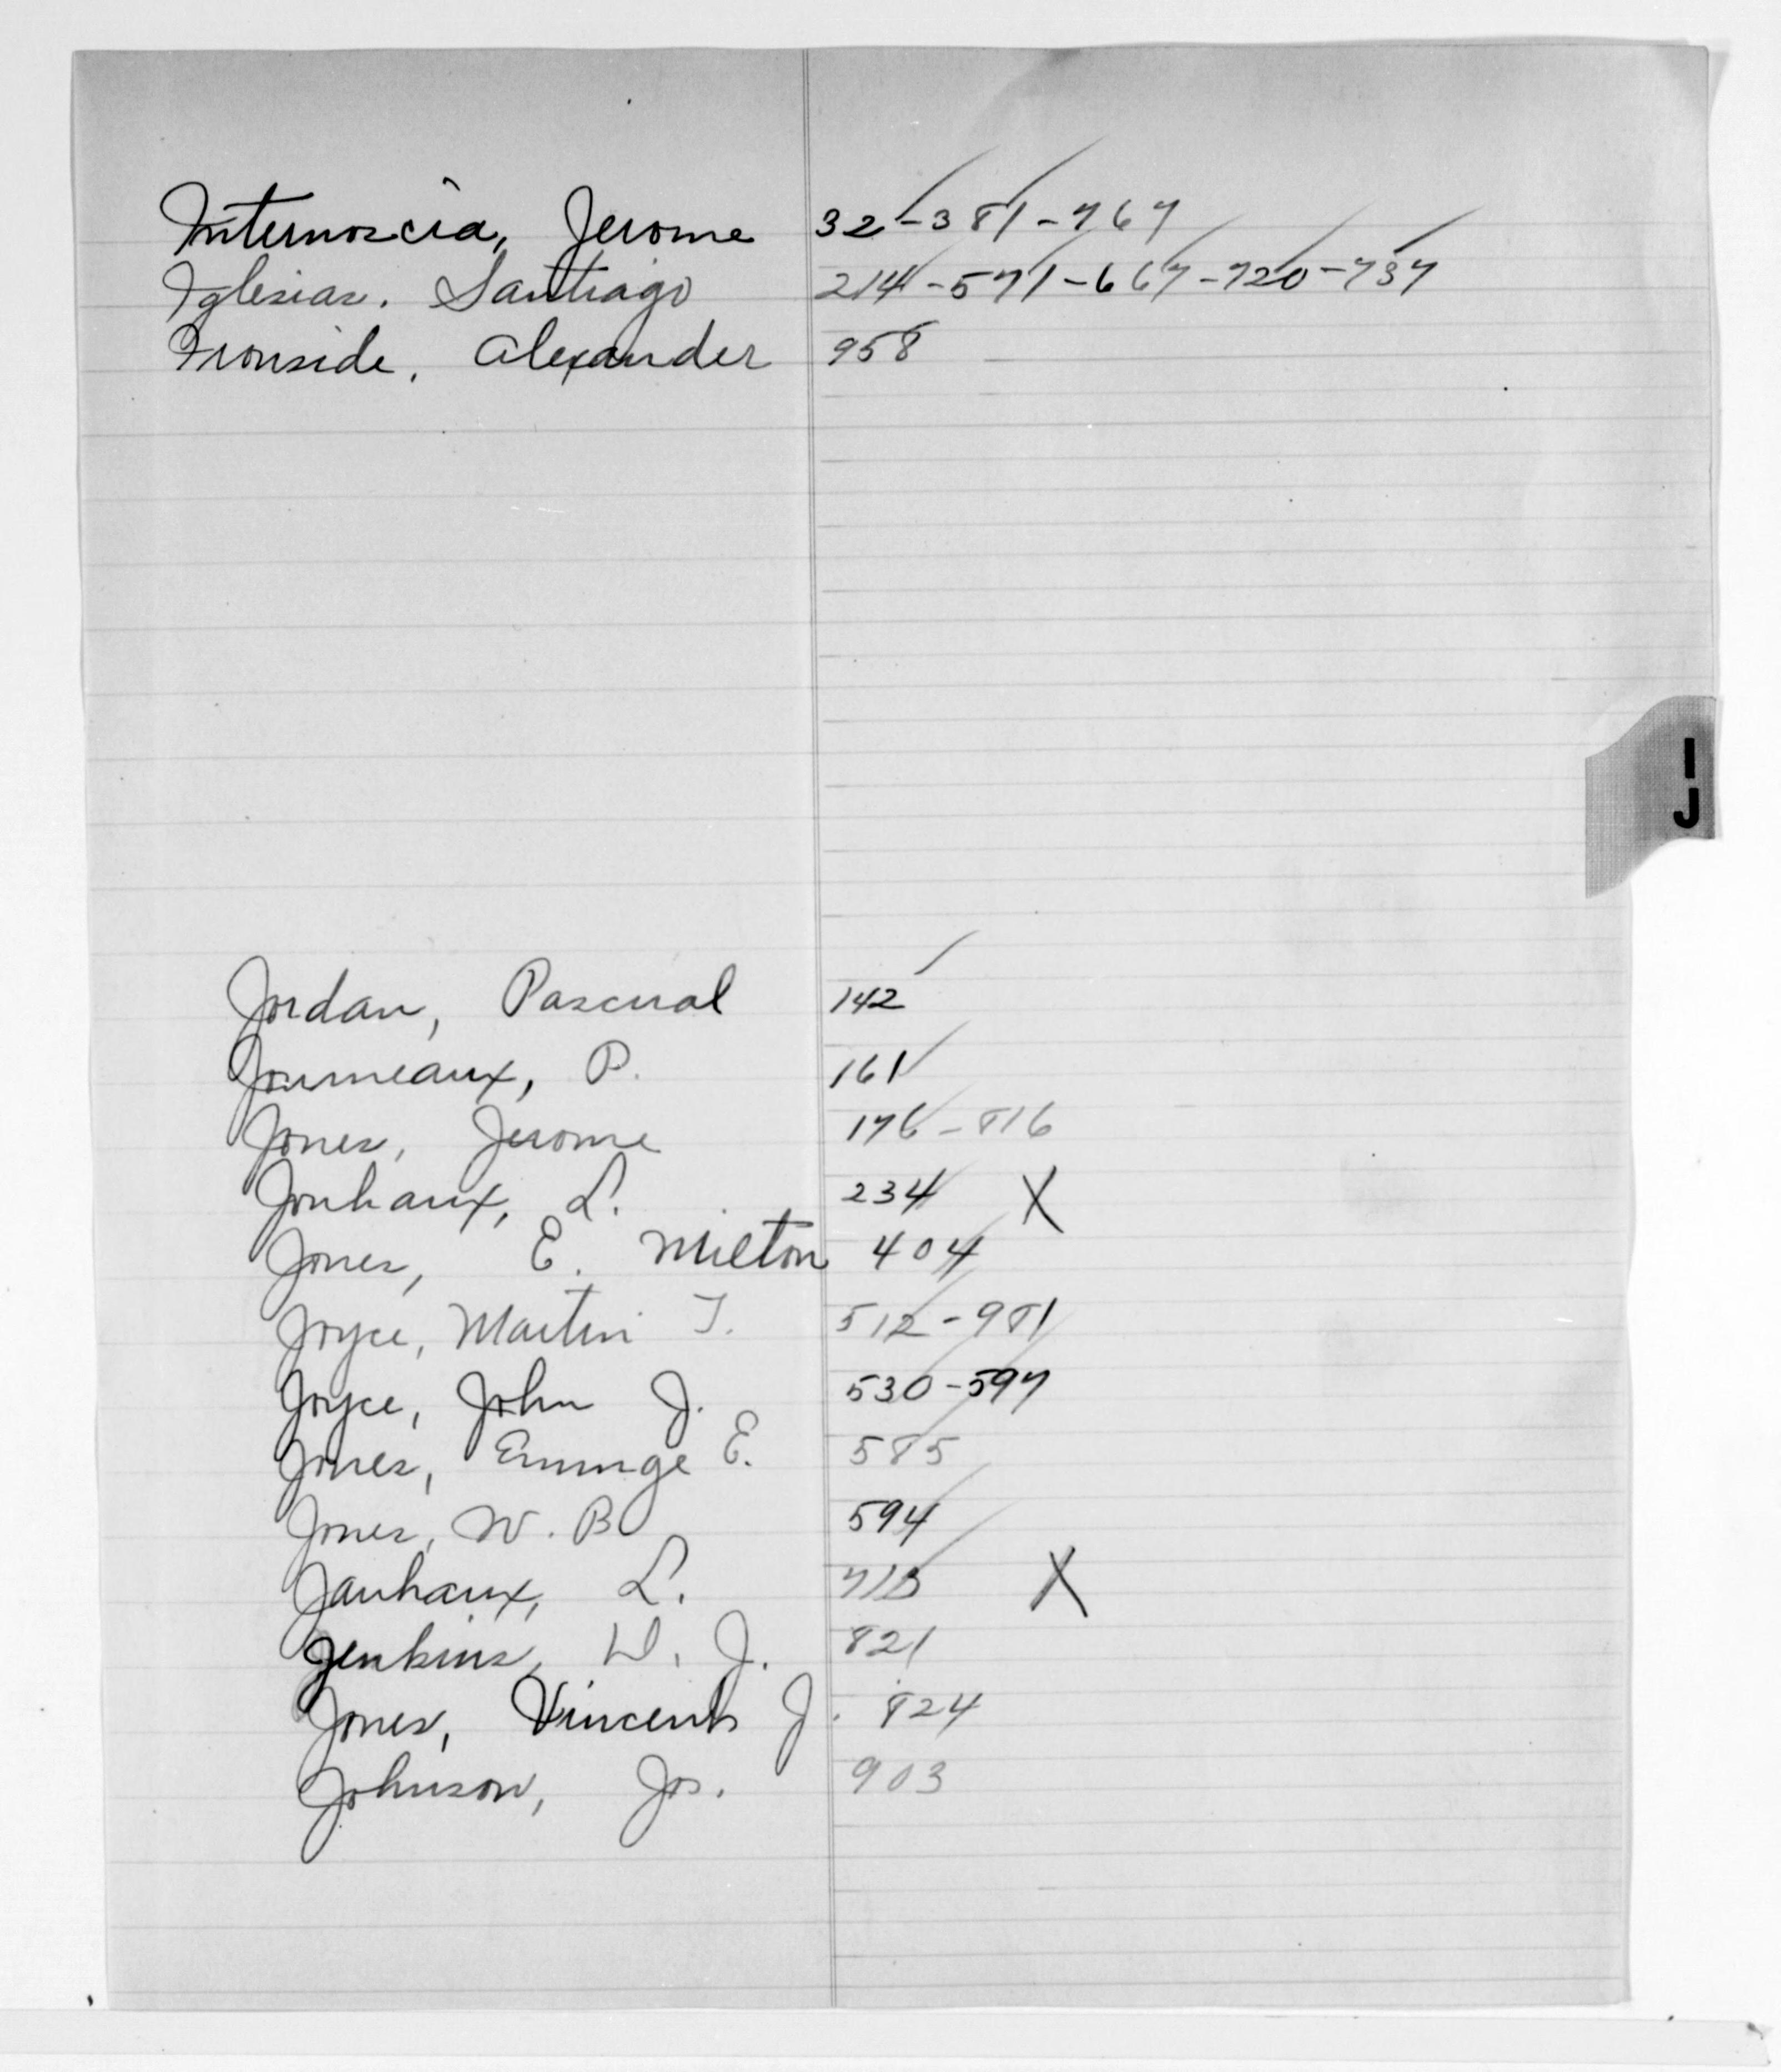 Internoscia, Jerome 32-381-767
Iglesias. Santiago 214-571-667-720-737
Ironside. Alexander 958
I
J
Jordan, Pascual 142
Journeaux, P. 161
Jones, Jerome 176-816
Jouhaux, L. X 234
Jones, E. Milton 404
Joyce, Martin T. 512-981
Joyce, John J. 530-597
Jones, E. 585
Jones, W. B 594
Jauhaux, L. X
Jenkins, W. J. 821
Jones, Vincent J. 824
Johnson, Jos. 903